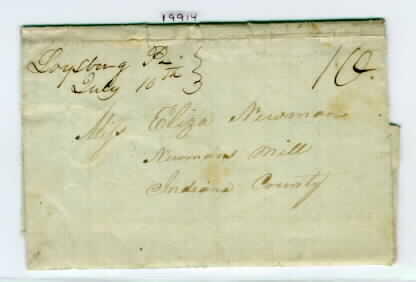 19914
Loysburg Pa.
July 10th
10.
Miss Eliza Newman
Newmans Mill
Indiana County